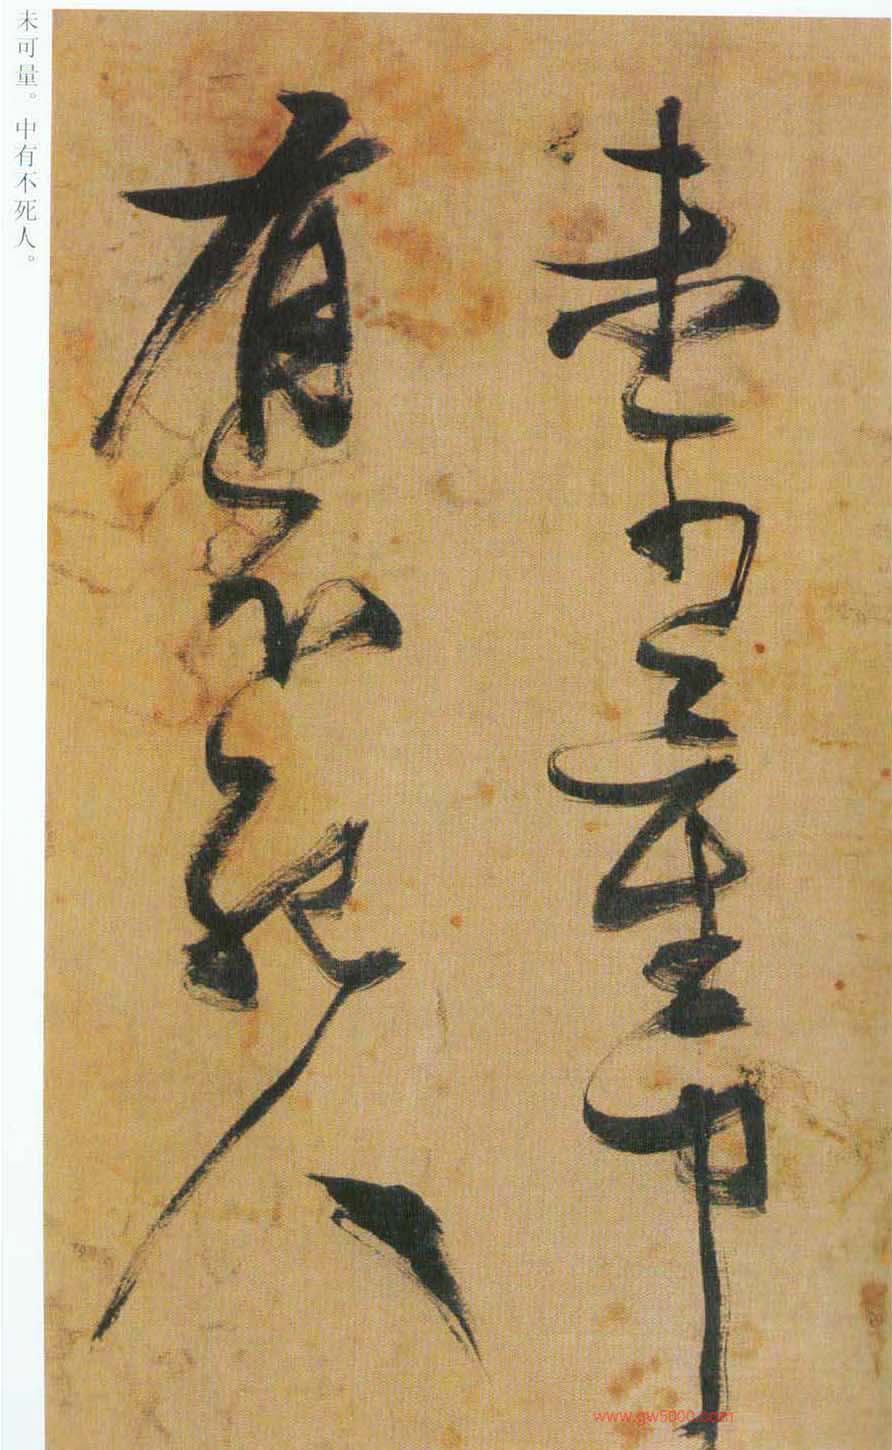 未可量中
有不死人
未可量。中有不死人。
www.gw5000.com